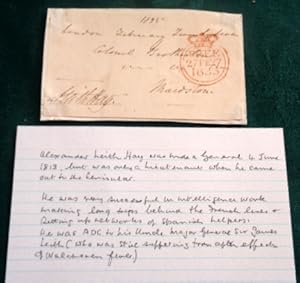 1835
London February Twenty seven
Colonel
Maidstone
FREE
27FE27
1835
Alexander Leith Hay was made a General 4 June
1813, but was only a Lieutenant when he came
out to the Peninsular.
He was very successful in intelligence work
making long trips behind the French lines &
setting up networks of Spanish helpers.
He was ADC to his Uncle Major General Sir James
Leith (who was still suffering from after effects
of Walcheren fever)